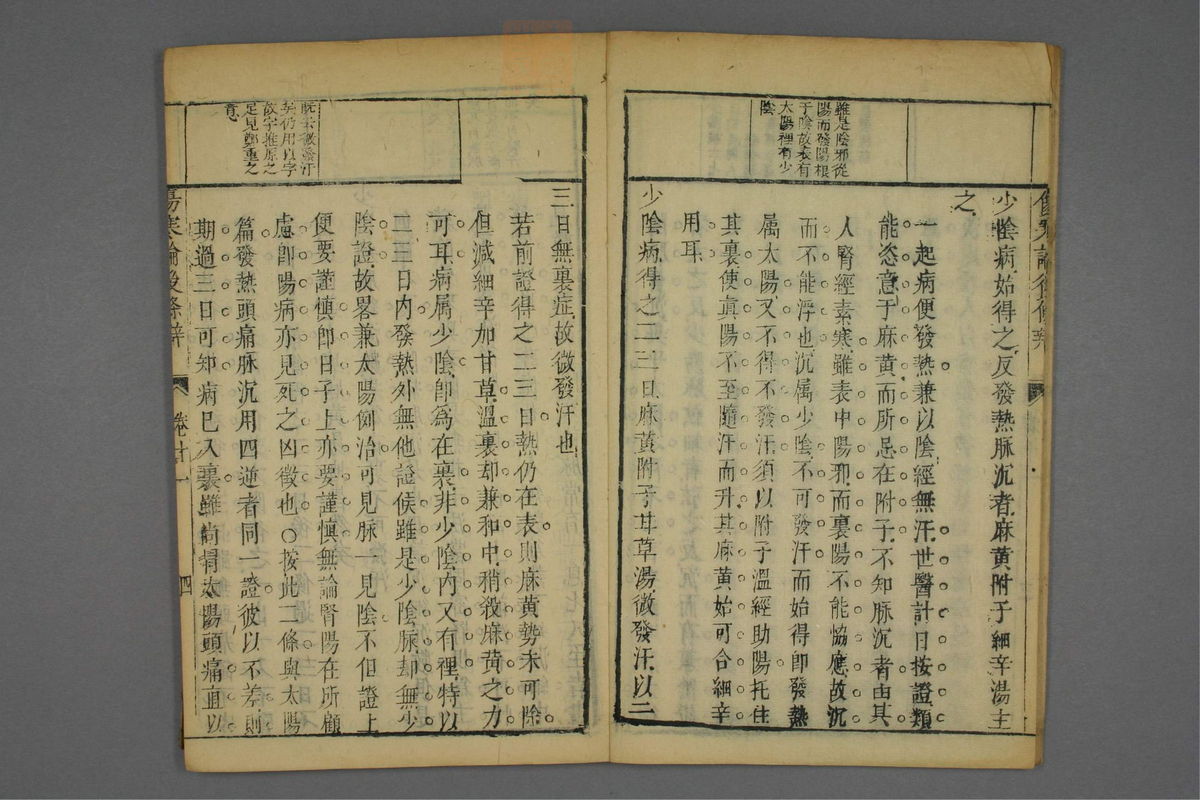 雖是陰邪從
陽而發陽根
于陰故表有
太陽裡有少
陰
少陰病始得之反發熱脉沉者麻黄附子細辛湯主
之
一起病便發熱兼以陰經無汗世醫計日按證類
能恣意于麻黄而所忌在附子不知脉沉者由其
人腎經素寒雖表中陽邪而裏陽不能協應故沉
而不能浮也沉属少陰不可發汗而始得即發熱
属太陽又不得不發汗須以附子溫經助陽托住
其裏使眞陽不至隨汗而升其麻黄始可合細辛
用耳
少陰病得之二三日麻黄附子甘草湯微發汗以二
既云微發汗
矣仍用以字
故字推原之
足見鄭重之
意
三日無裏症故微發汗也
若前證得之二三日熱仍在表則麻黄勢未可除
但減細辛加甘草溫裏却兼和中稍殺麻黄之力
可耳病属少陰即為在裏非少陰内又有裡特以
二三日内發熱外無他證候雖是少陰脉却無少
陰證故畧兼太陽例治可見脉一見陰不但證上
便要謹慎即日子上亦要謹慎無論腎陽在所顧
慮即陽病亦見死之凶徵也○按此二條與太陽
篇發熱頭痛脉沉用四逆者同一證彼以不差則
期過三日可知病已入裏雖尚有太陽頭痛直以
傷寒論後條辨 卷十一 四